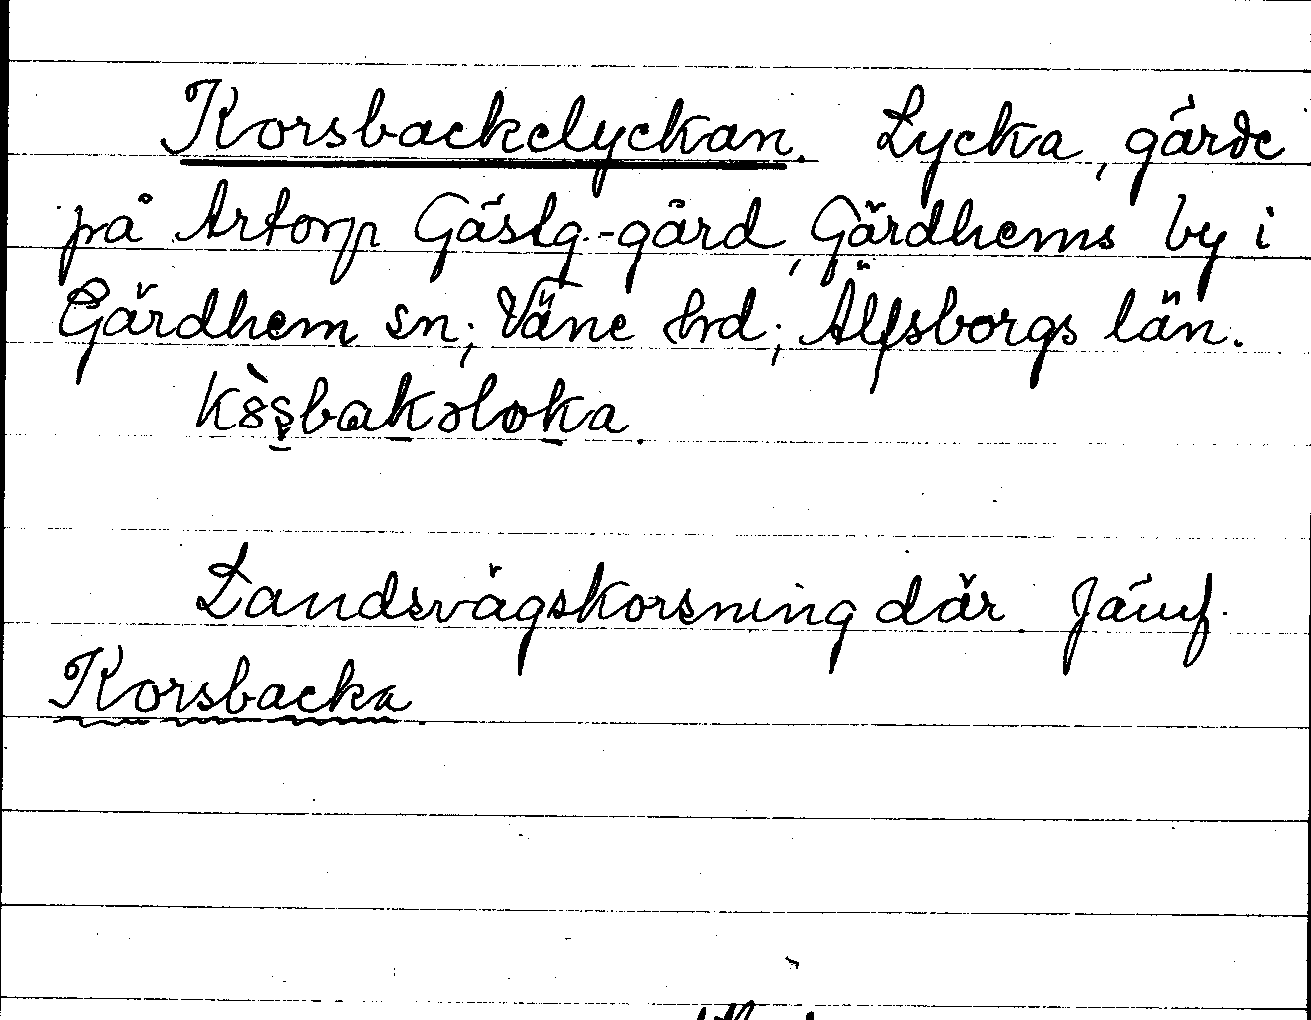 Korsbackelyckan. Lycka, gärde
på Artorp Gästg.-gård, Gärdhems by i
Gärdhem sn; Väne hd; Älfsborgs län.
Landsvägskorsning där. Jämf.
Korsbacka.